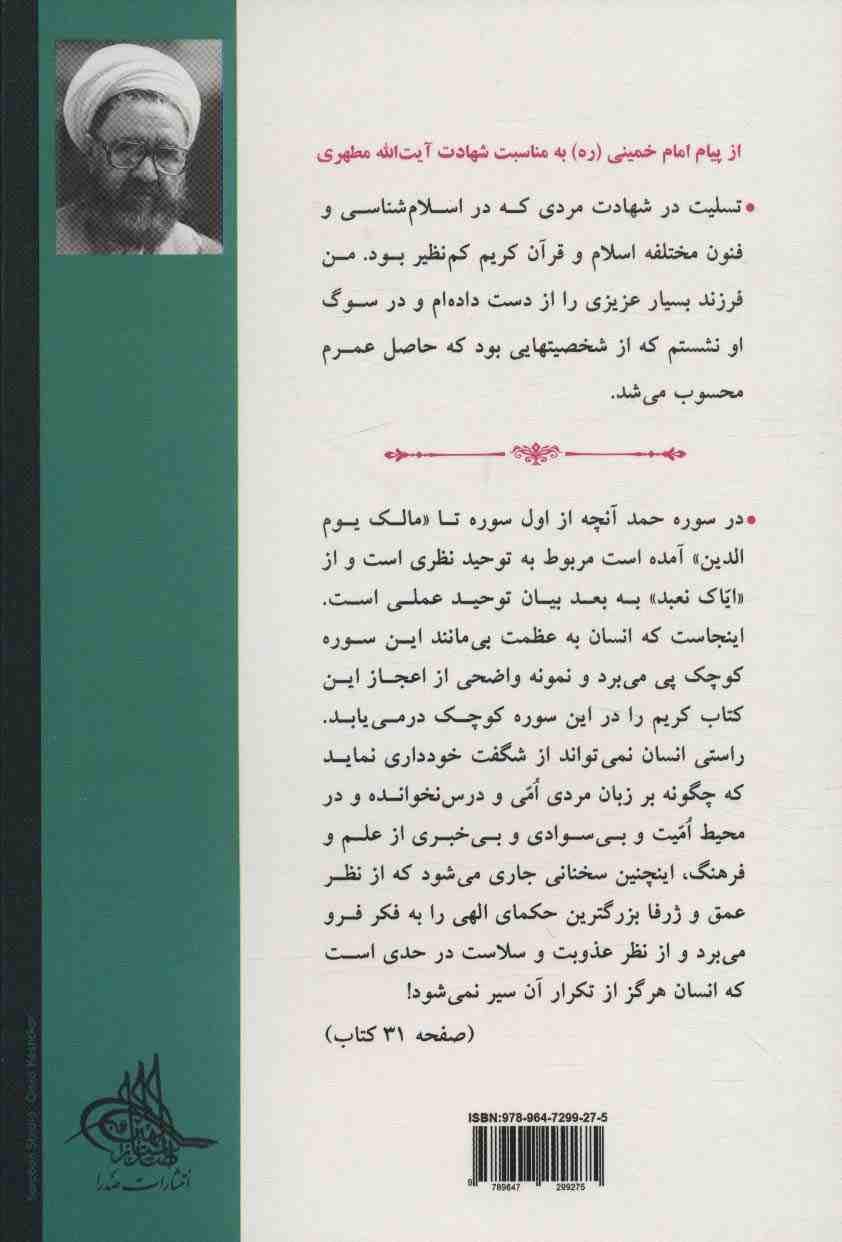 از پیام امام خمینی (ره) به مناسبت شهادت آیت‌الله مطهری
• تسلیت در شهادت مردی کــه در اســلام‌شناســی و
فنون مختلفه اسلام و قرآن کریم کم‌نظیر بــود. مــن
فرزند بسیار عزیزی را از دست داده‌ام و در ســوگ
او نشستم که از شخصیتهایی بود که حاصل عمــرم
محسوب می‌شد.
• در سوره حمد آنچه از اول سوره تــا «مالــک یــوم
الدین» آمده است مربوط به توحید نظری است و از
«ایّاک نعبد» بــه بعد بیــان توحیــد عملــی اســت.
اینجاست که انسان به عظمت بی‌مانند ایــن ســوره
کوچک پی می‌برد و نمونه واضحی از اعجــاز ایــن
کتاب کریم را در این سوره کوچــک درمــی‌یابــد.
راستی انسان نمی‌تواند از شگفت خودداری نمایــد
که چگونه بر زبان مردی اُمّی و درس‌نخوانــده و در
محیط اُمّیت و بــی‌ســوادی و بــی‌خبــری از علــم و
فرهنگ، اینچنین سخنانی جاری می‌شود که از نظــر
عمق و ژرفا بزرگترین حکمای الهی را به فکر فــرو
می‌برد و از نظر عذوبت و سلاست در حدی اســت
که انسان هرگز از تکرار آن سیر نمی‌شود!
(صفحه ۳۱ کتاب)
ISBN:978-964-7299-27-5
9 789647 299275
انتشارات صدرا